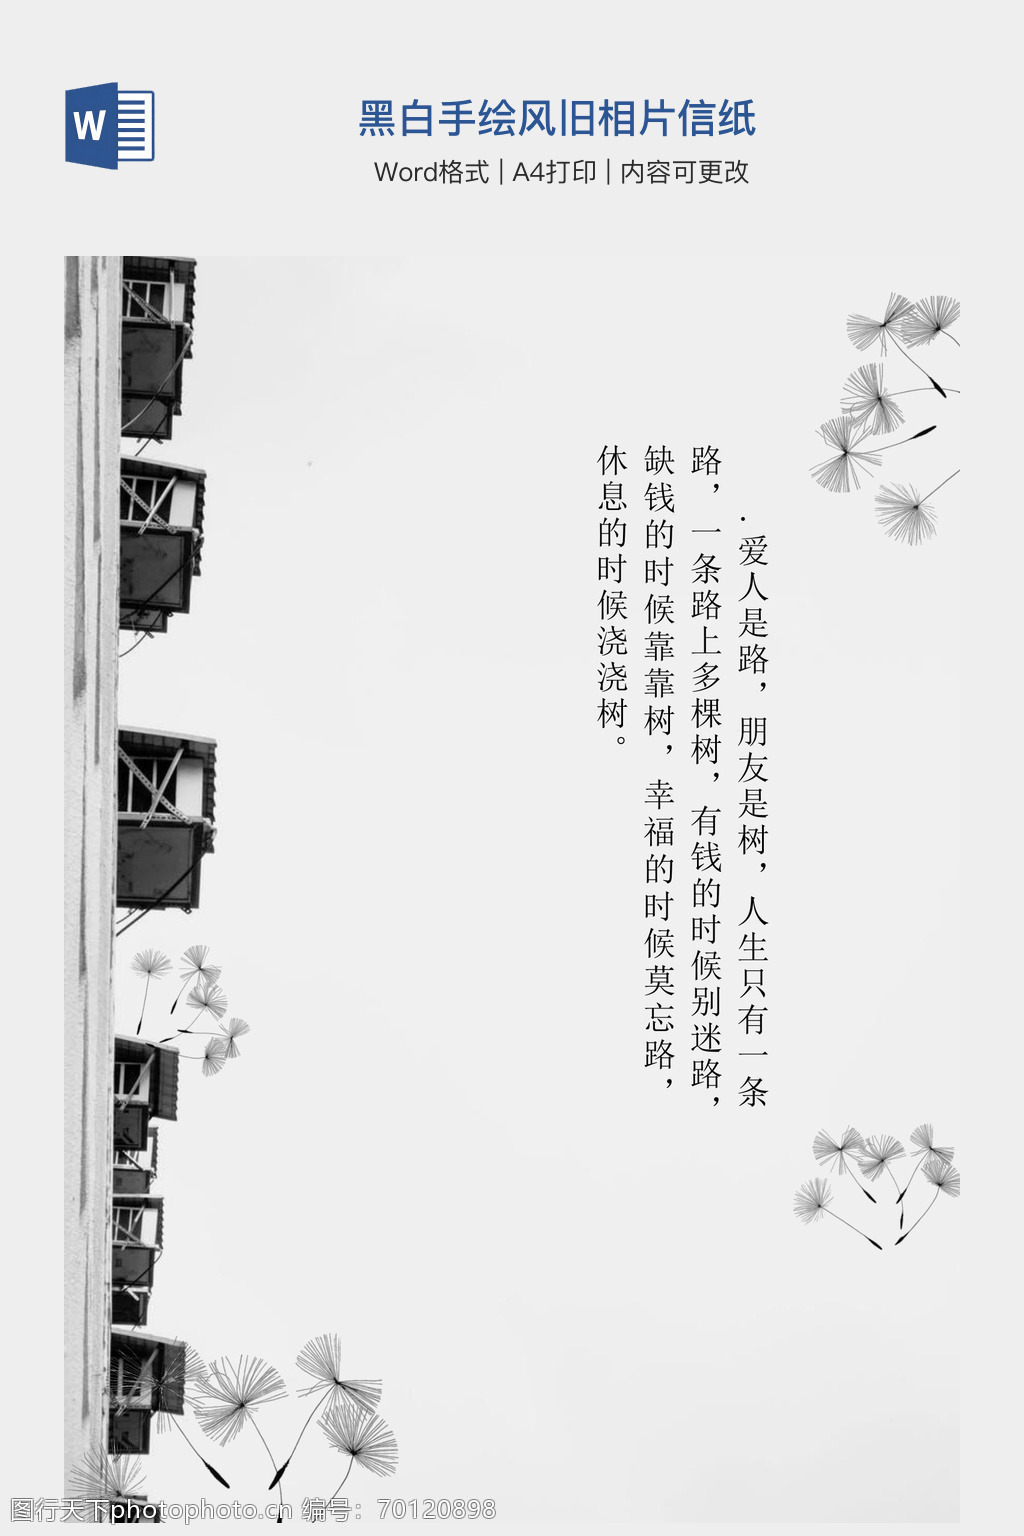 W
黑白手绘风旧相片信纸
Word格式 | A4打印 | 内容可更改
.爱人是路，朋友是树，人生只有一条
路，一条路上多棵树，有钱的时候别迷路，
缺钱的时候靠靠树，幸福的时候莫忘路，
休息的时候浇浇树。
图行天下photophoto.cn 编号：70120898